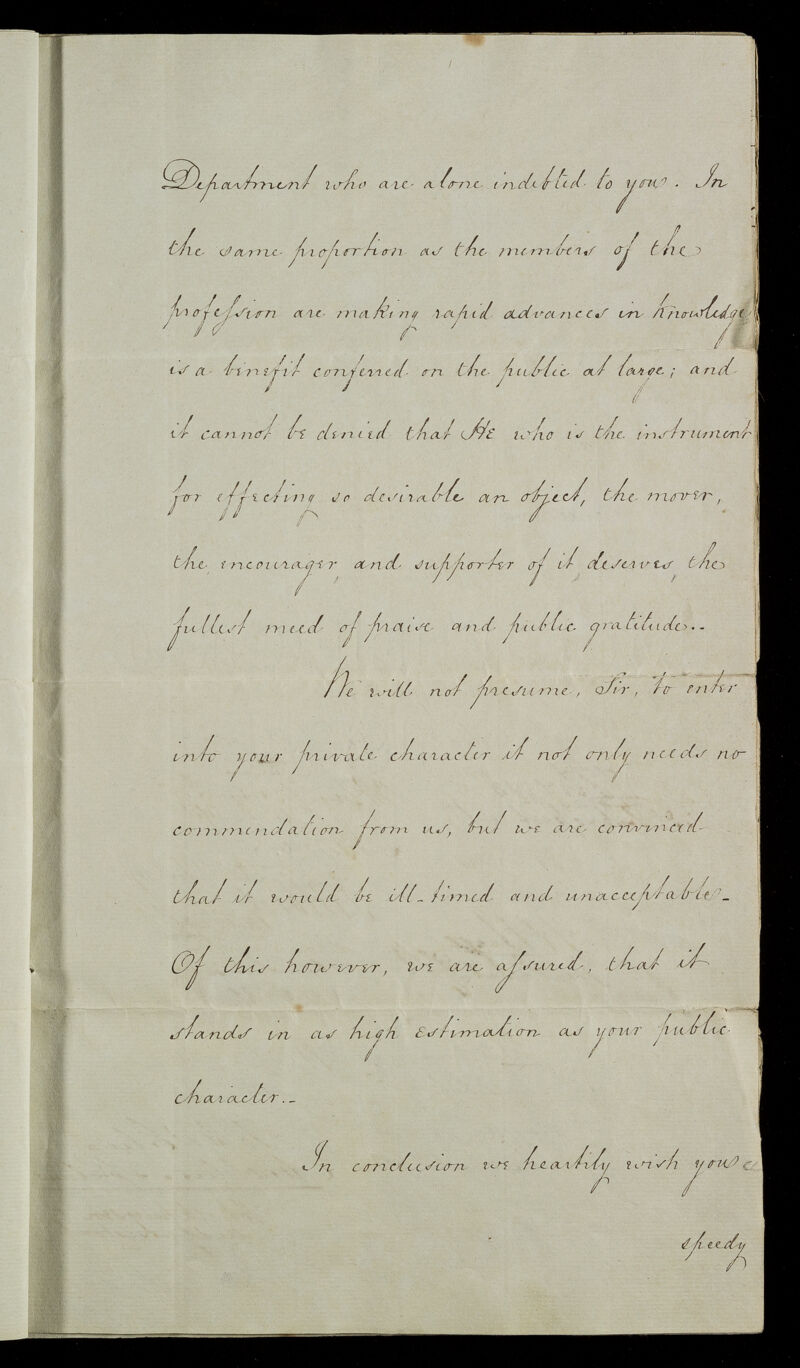 Department who are alone indebted to you. In
the same proportion as the members of the
profession are making rapid advances in knowledge
is a benefit conferred on the public at large; and
it cannot be denied that He who is the instrument
for effecting so desirable an object, the mover,
the encourager, and supporter of it, deserves, the
fullest meed of praise and public gratitude..-
We will not presume, Sir, to enter
into your private character it not only needs no
commendation from us, but we are convinced
that it would be ill-timed and unacceptable-
Of this however, we are assured, that it
stands in as high estimation as your public
character.-
In conclusion we heartily wish you a
speedy